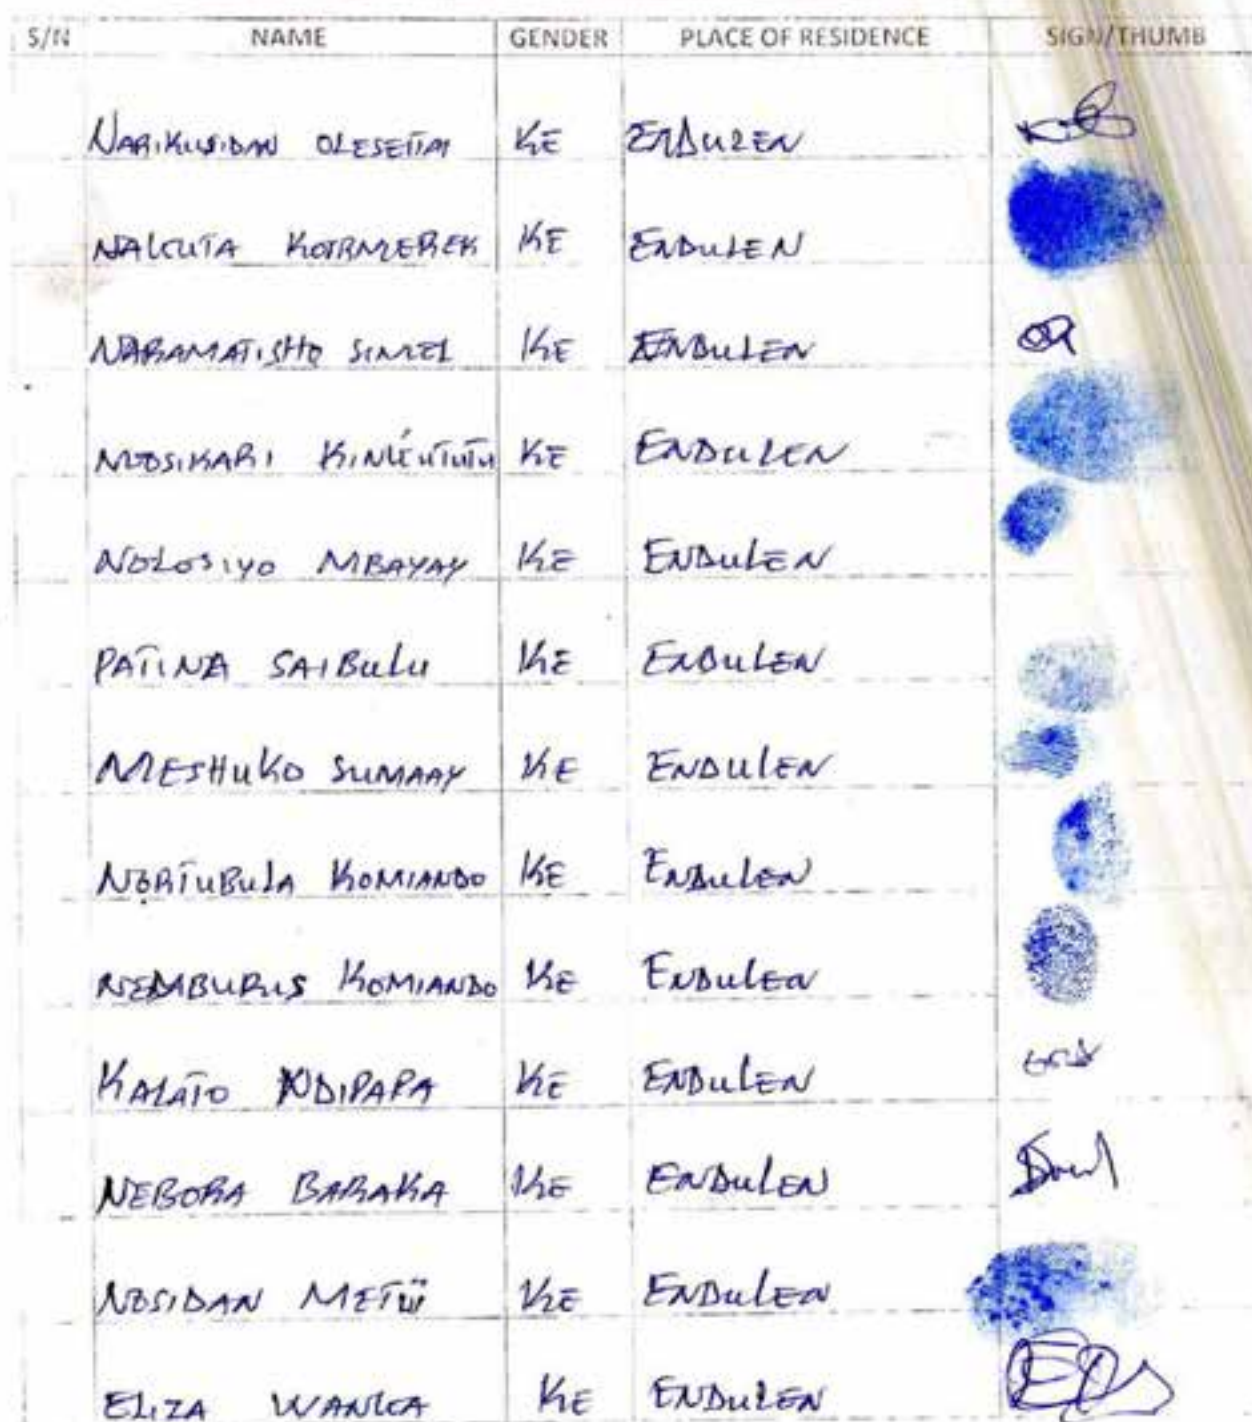 S/N NAME GENDER PLACE OF RESIDENCE SIGN/THUMB
NARIKUSIDAN OLESEITAI KE ENDULEN
NALCUTA KE ENDULEN
NARAMATISHO SIMEL KE ENDULEN
NOOSIKARI KE ENDULEN
NOLOSIYO MBAYAY KE ENDULEN
PATINA SAIBULU KE ENDULEN
MESHUKO SUMAAY KE ENDULEN
NORTUBULA KOMIANDO KE ENDULEN
KOMIANDO KE ENDULEN
KALATO NDIPAPA KE ENDULEN
NEBORA BARAKA KE ENDULEN
NOSIDAN METUI KE ENDULEN
ELIZA WANGA KE ENDULEN